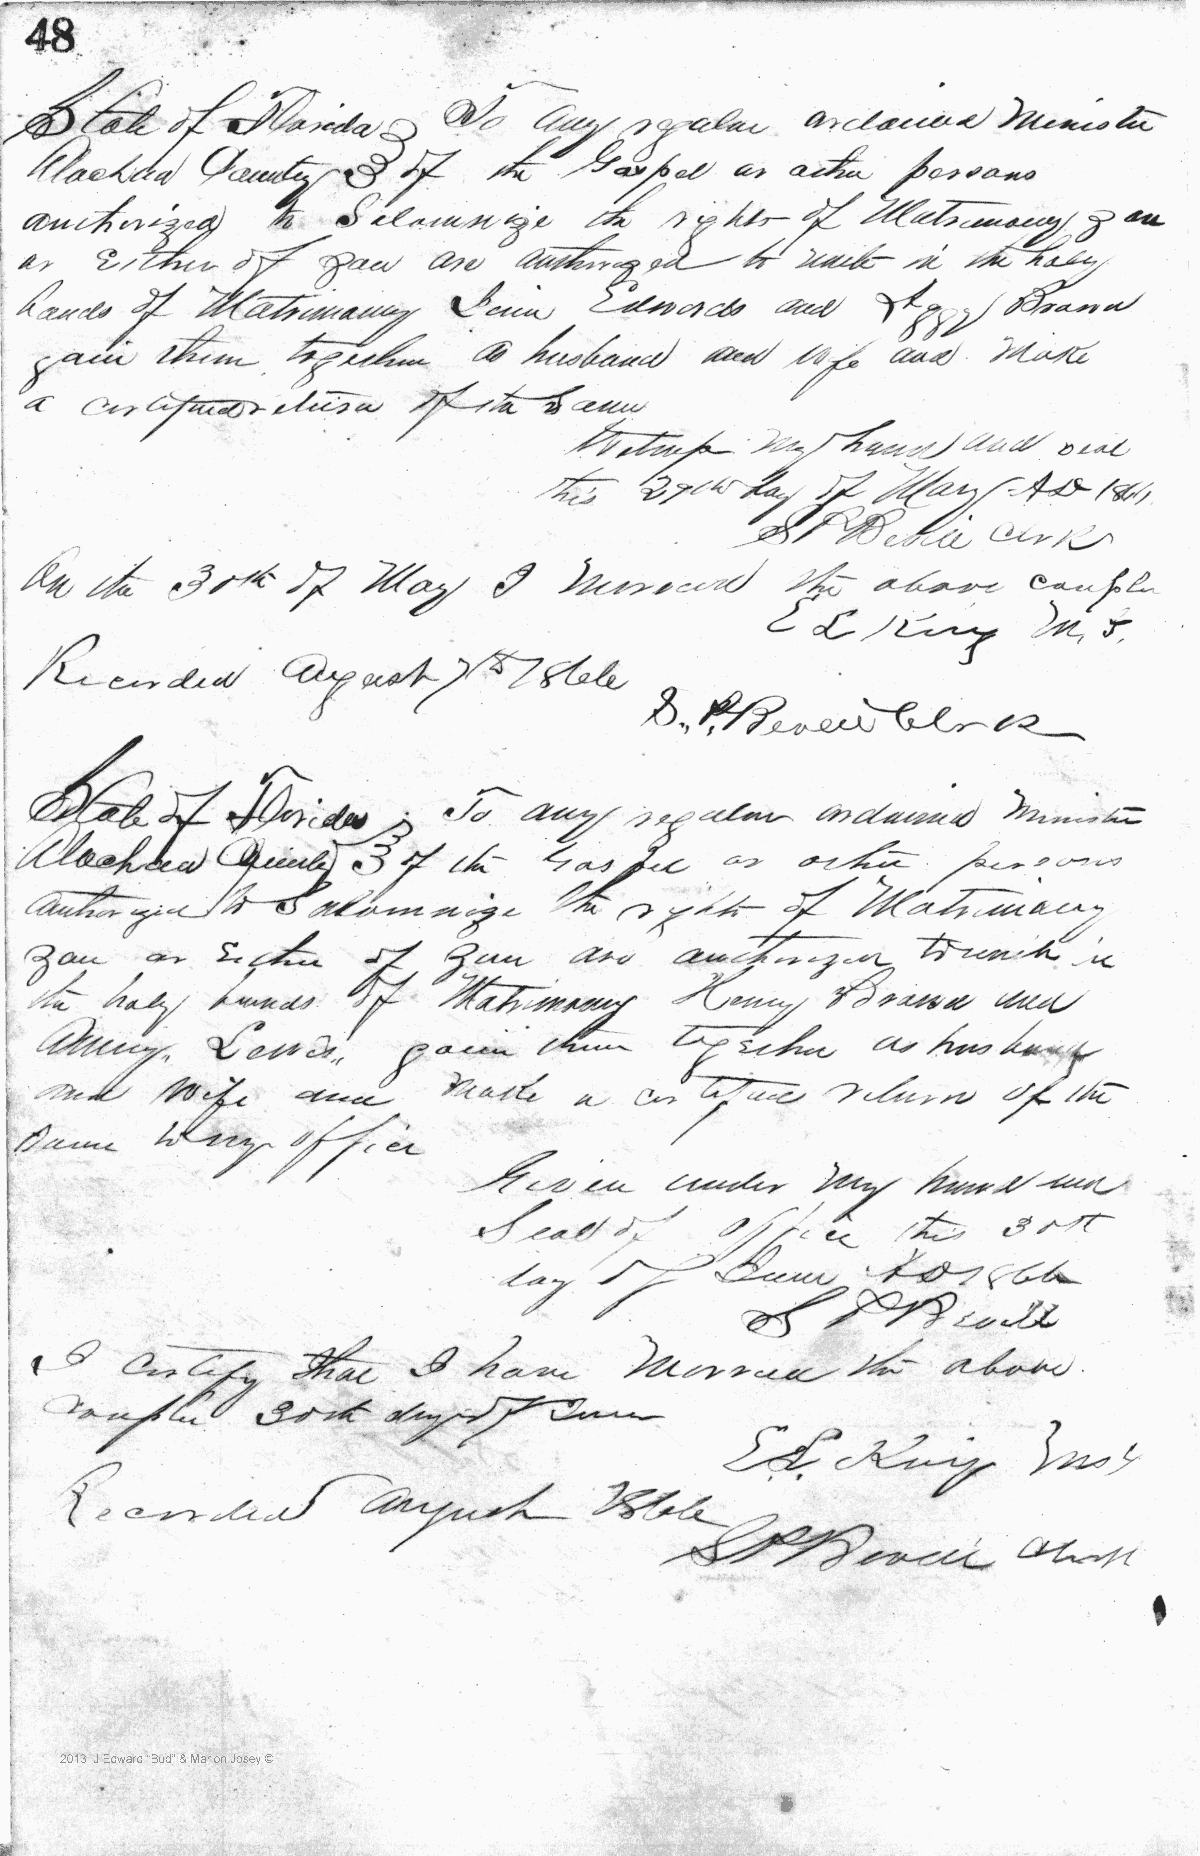 48
State of Florida } To any regular ordained Minister
Alachua County } of the Gospel or other persons
authorized to Solomnize the rights of Matrimony you
or Either of you are authorized to unite in the holy
bands of Matrimony Edwards and Brown
join them together as husband and wife and Make
a certified return of the Same
Witness my hand and seal
this 29th day of May AD 1866
S P Bevill Clerk
On the 30th of May I Married the above couple
E L King M.G.
Recorded August 7th 1866
S. P. Bevill Clerk
State of Florida } To any regular ordained Minister
Alachua County } of the Gospel or other persons
Authorized to Solomnize the rights of Matrimony
you or Either of you are authorized to unite in
the holy bands of Matrimony Henry Brown and
Lewis join them together as husband
and wife and Make a certified return of the
Same to my office
Given under my hand and
Seal of office this 30th
day of June AD 1866
S P Bevill
I certify that I have Married the above
couple 30th day of June
E L. King
Recorded August 1866
S P Bevill Clerk
2013 J Edward "Bud" & Marion Josey ©